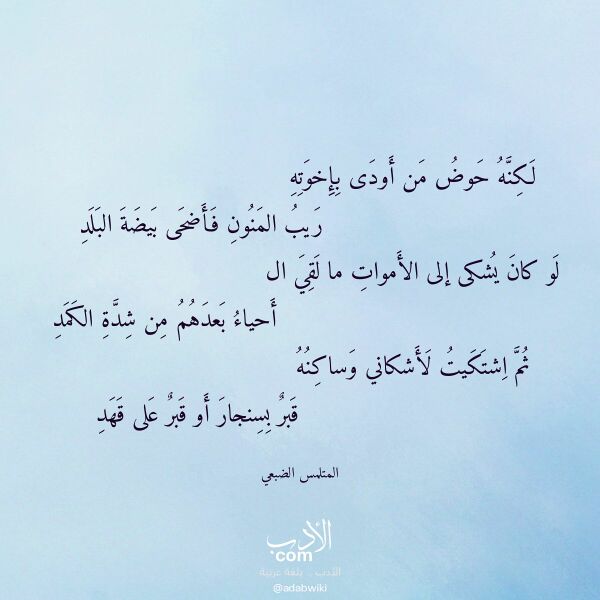 لَكِنَّهُ حَوضُ مَن أَودَى بِإِخوَتِهِ
رَيبُ المَنُونِ فَأَضحَى بَيضَةَ البَلَدِ
لَو كانَ يُشكى إلى الأَمواتِ ما لَقِيَ ال
أَحياءُ بَعدَهُمُ مِن شِدَّةِ الكَمَدِ
ثُمَّ اِشتَكَيتُ لَأَشكاني وَساكِنُهُ
قَبرٌ بِسِنجارَ أَو قَبرٌ عَلى قَهَدِ
المتلمس الضبعي
الأدب
com
الأدب .. بلغة عربية
@adabwiki